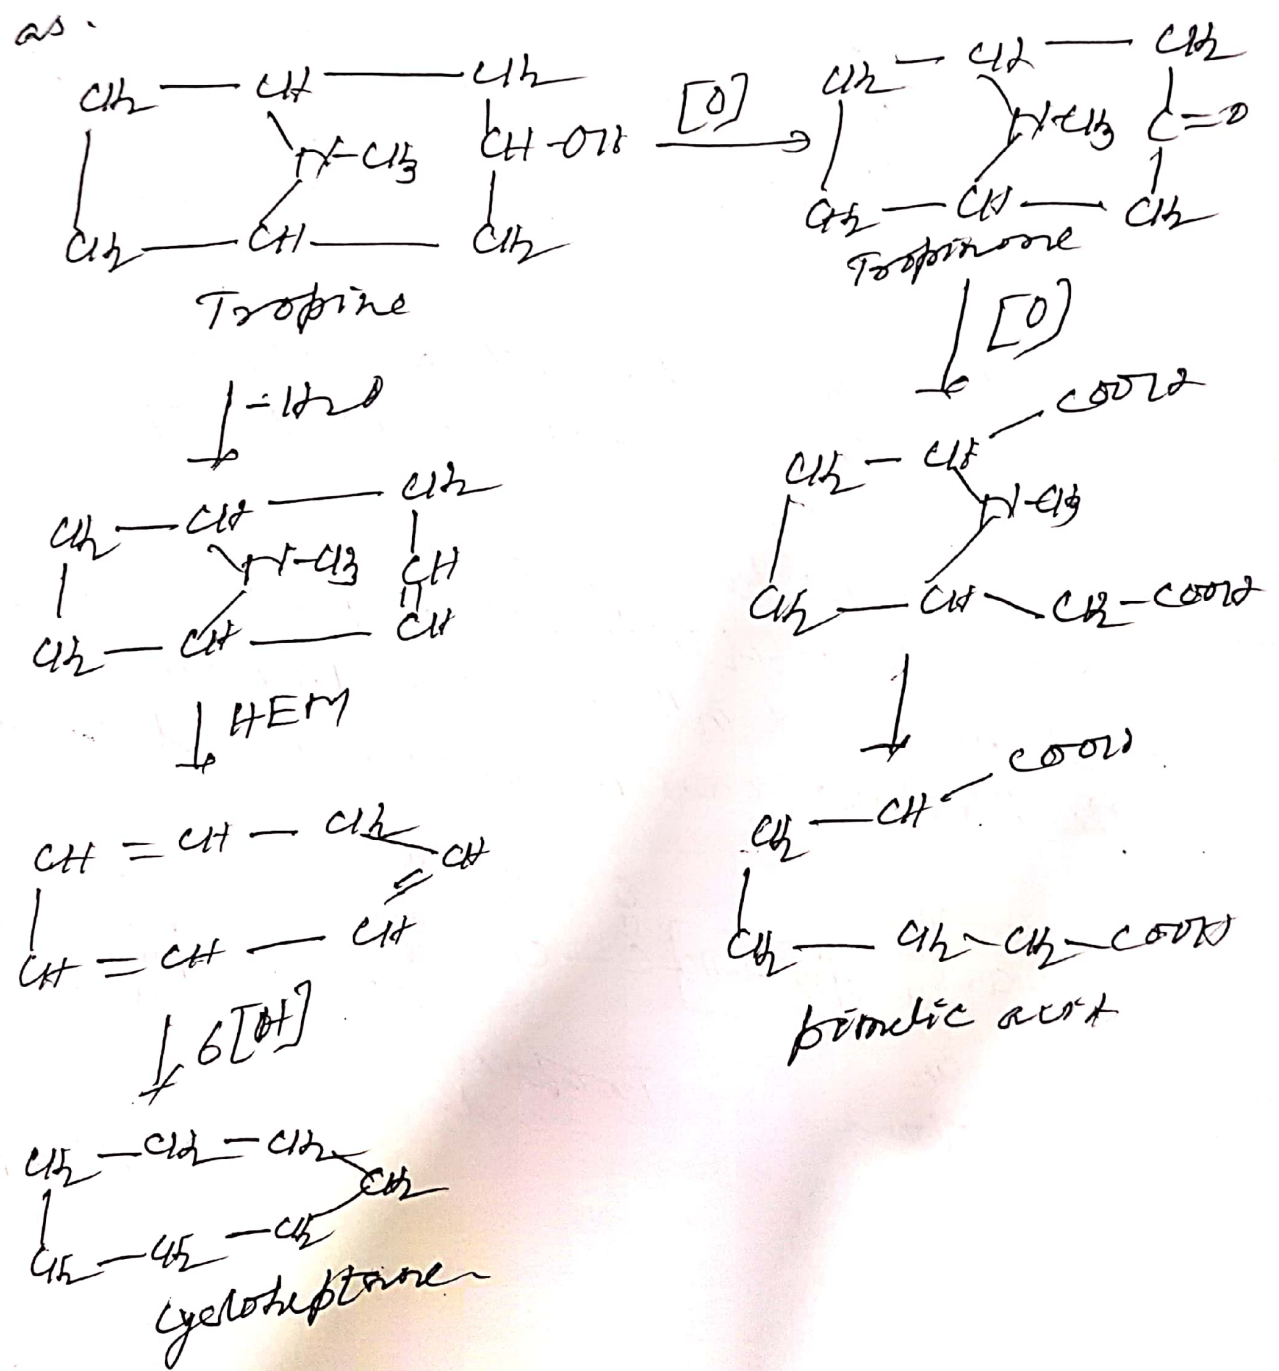 as.
CH2 — CH — CH2
CH-OH
N-CH3
CH2 — CH — CH2
Tropine
[O]
CH2 — CH — CH2
N-CH3 C=O
CH2 — CH — CH2
Tropinone
[O]
-H2O
CH2 — CH — CH2
N-CH3 CH
CH
CH2 — CH — CH
HEM
CH = CH — CH2
CH
CH = CH — CH
6[H]
CH2 — CH2 — CH2
CH2
CH2 — CH2 — CH2
cycloheptane
COOH
CH2 — CH
N-CH3
CH2 — CH — CH2-COOH
COOH
CH2 — CH
CH2 — CH2 — CH2 — COOH
pimelic acid